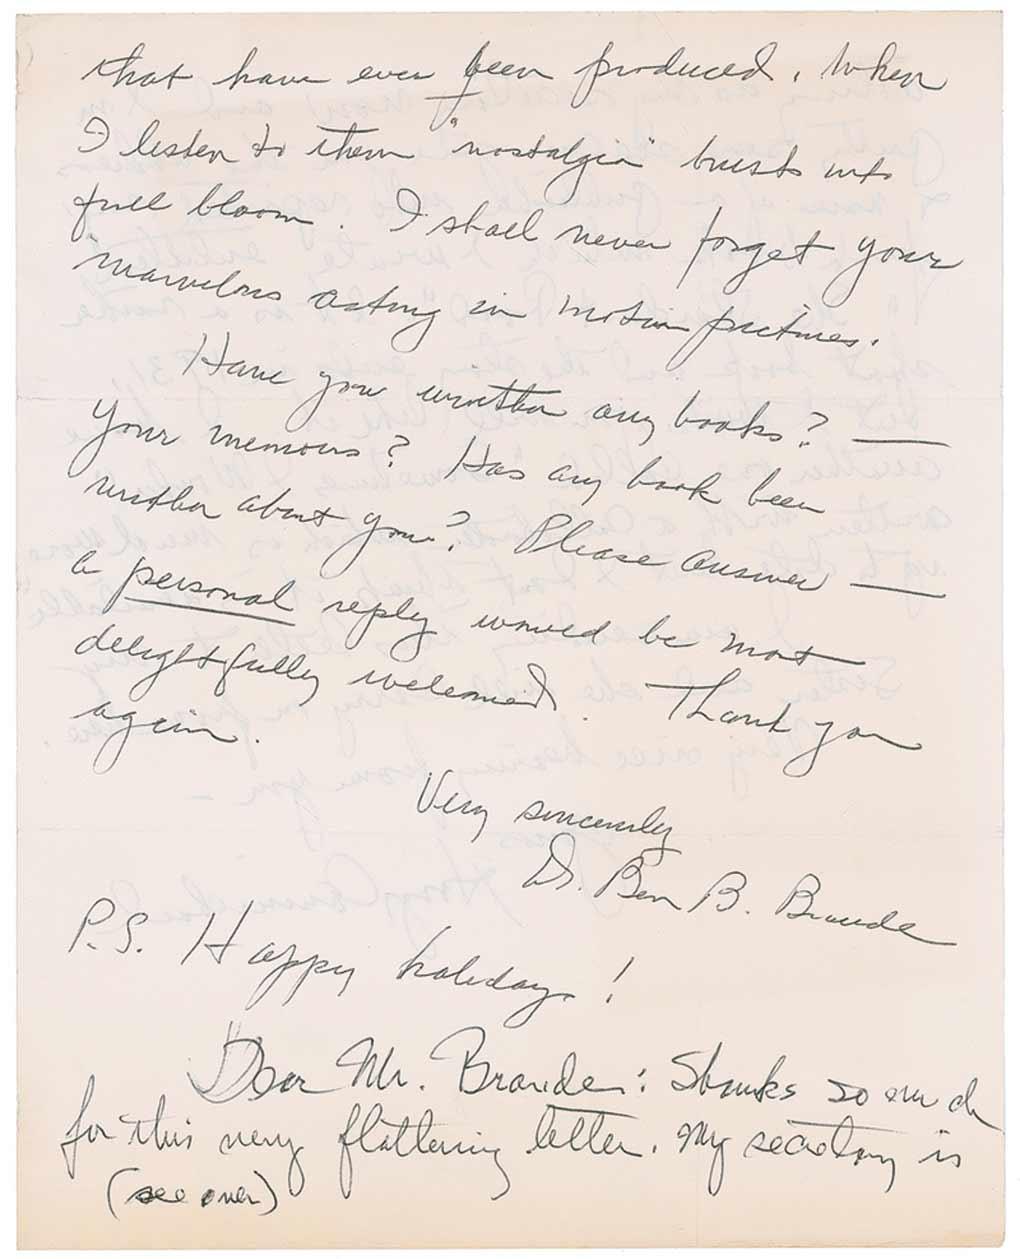 that have ever been produced. When
I listen to them "nostalgia" bursts into
full bloom. I shall never forget your
marvelous acting in motion pictures.
Have you written any books? —
Your memoirs? Has any book been
written about you? Please answer —
a personal reply would be most
delightfully welcomed. Thank you
again.
Very sincerely
Dr. Ben B. Braude
P.S. Happy holidays!
Dear Mr. Braude: Thanks so much
for this very flattering letter. My secretary is
(see over)